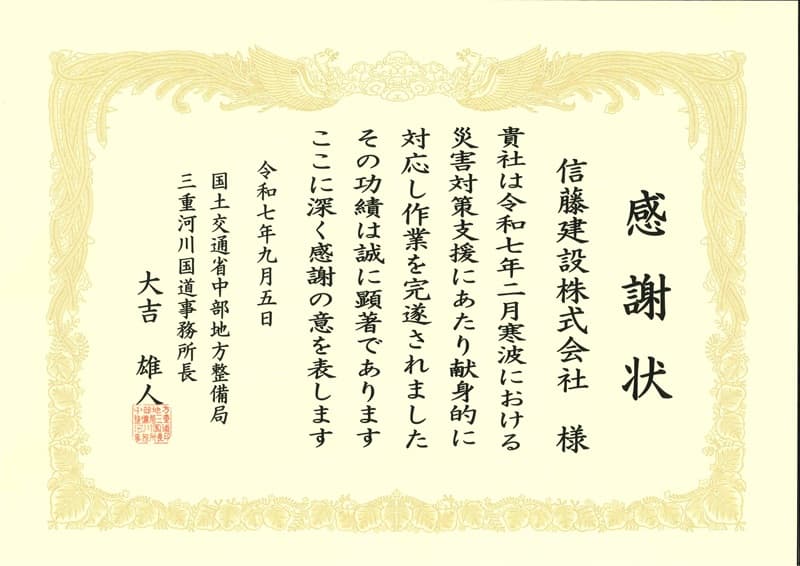 感謝状
信藤建設株式会社 様
貴社は令和七年二月寒波における
災害対策支援にあたり献身的に
対応し作業を完遂されました
その功績は誠に顕著であります
ここに深く感謝の意を表します
令和七年九月五日
国土交通省中部地方整備局
三重河川国道事務所長
大吉 雄人